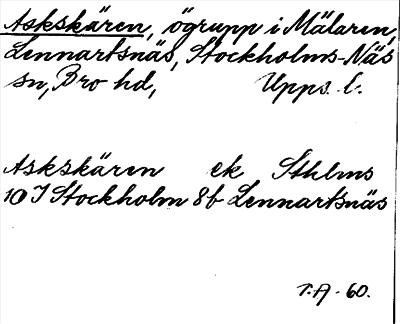 Askskären, ögrupp i Mälaren,
Lennartsnäs, Stockholms-Näs
sn, Bro hd, Upps. l.
Askskären ek Sthlms
10 I Stockholm 8b Lennartsnäs
T.A - 60.